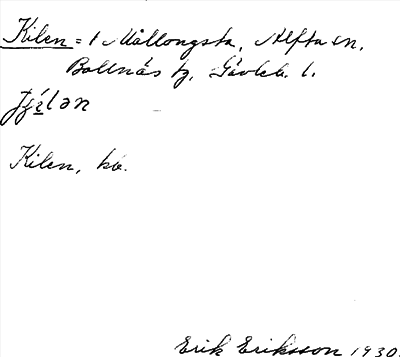 Kilen = 1 Mållongsta, Alfta sn,
Bollnäs tg, Gävleb. l.
Kilen, kb.
Erik Eriksson 1930.